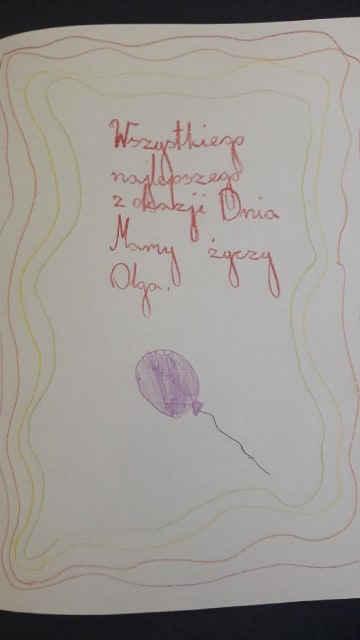 Wszystkiego
najlepszego
z okazji Dnia
Mamy życzy
Olga.